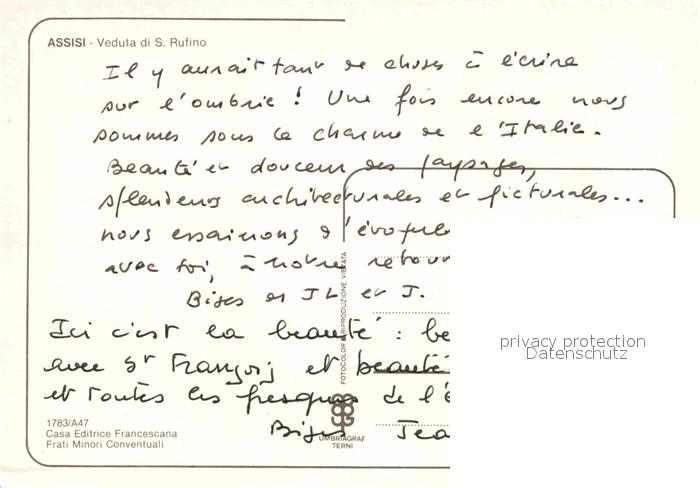 ASSISI - Veduta di S. Rufino
Il y aurait tant de choses à écrire
sur l'ombrie ! Une fois encore nous
sommes sous le charme de l'Italie.
Beauté et douceur des paysages,
splendeurs architecturales et picturales...
nous essaierons d'évoquer
avec toi, à notre retour
Bises de JL et J.
Ici c'est la beauté : be
avec St François et beauté
et toutes les fresques de l'é
Bises Jea
FOTOCOLOR E RIPRODUZIONE VIETATA
privacy protection
Datenschutz
1783/A47
Casa Editrice Francescana
Frati Minori Conventuali
UMBRIAGRAF
TERNI